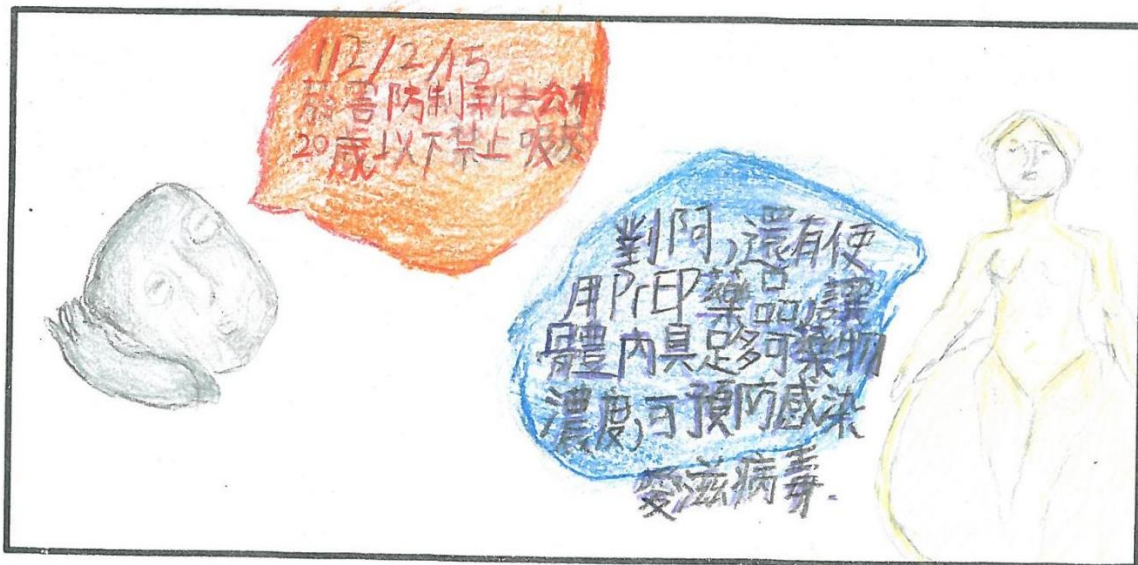 112/2/15
菸害防制新法公布
20歲以下禁止吸菸
對阿,還有使
用PrEP藥品,讓
體內具足夠可藥物
濃度,可預防感染
愛滋病毒.